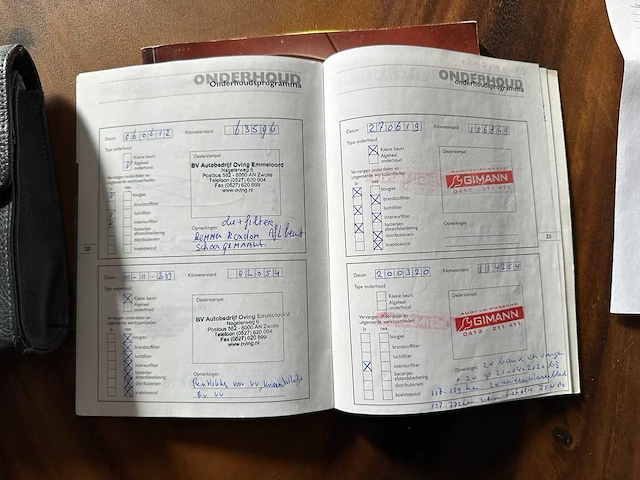 ONDERHOUD
Onderhoudsprogramma
Datum 060612 Kilometerstand 63596
Type onderhoud
Kleine beurt
Algeheel onderhoud
Dealerstempel
BV Autobedrijf Oving Emmeloord
Nagelerweg 6
Postbus 582 - 8000 AN Zwolle
Telefoon (0527) 620 004
Fax (0527) 620 899
www.oving.nl
Vervangen onderdelen en
uitgevoerde werkzaamheden
bougies
brandstoffilter
luchtfilter
interieurfilter
batterijen afstandsbediening
distributieriem
koelvloeistof
Opmerkingen:
olie + filter,
Remmen Rondom
Schoongemaakt.
20
Datum Kilometerstand 82054
Type onderhoud
Kleine beurt
Algeheel onderhoud
Dealerstempel
BV Autobedrijf Oving Emmeloord
Nagelerweg 6
Postbus 582 - 8000 AN Zwolle
Telefoon (0527) 620 004
Fax (0527) 620 899
www.oving.nl
Vervangen onderdelen en
uitgevoerde werkzaamheden
bougies
brandstoffilter
luchtfilter
interieurfilter
batterijen afstandsbediening
distributieriem
koelvloeistof
Opmerkingen:
ONDERHOUD
Onderhoudsprogramma
Datum 270619 Kilometerstand
Type onderhoud
Kleine beurt
Algeheel onderhoud
Dealerstempel
GIMANN
0413 - 211 411
Vervangen onderdelen en
uitgevoerde werkzaamheden
bougies
brandstoffilter
luchtfilter
interieurfilter
batterijen afstandsbediening
distributieriem
koelvloeistof
Opmerkingen:
21
Datum 200320 Kilometerstand
Type onderhoud
Kleine beurt
Algeheel onderhoud
Dealerstempel
GIMANN
0413 - 211 411
Vervangen onderdelen en
uitgevoerde werkzaamheden
bougies
brandstoffilter
luchtfilter
interieurfilter
batterijen afstandsbediening
distributieriem
koelvloeistof
Opmerkingen: 2x band vervangen